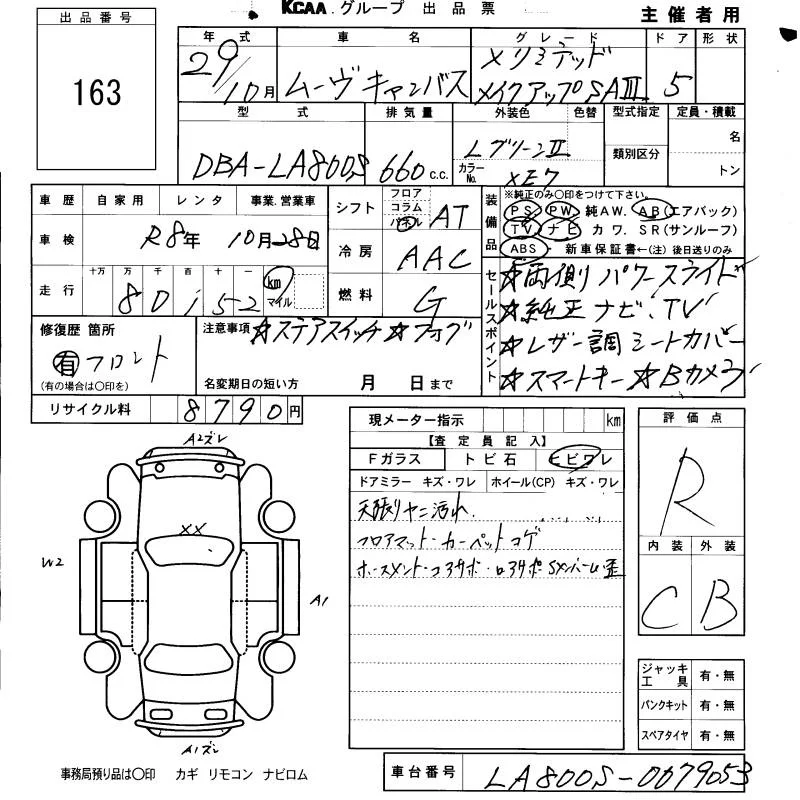 KCAA.グループ 出品票
主催者用
出品番号
163
年式 車名 グレード ドア 形状
29/10月 ムーヴキャンバス Xリミテッド メイクアップSAIII 5
型式 排気量 外装色 色替 型式指定 定員・積載
DBA-LA800S 660c.c. LグリーンII
カラーNo. XE7
類別区分
名
トン
車歴 自家用 レンタ 事業.営業車
車検 R8年 10月28日
走行 十万 万 千 百 十 一
80152 km マイル
シフト フロア コラム パネル AT
冷房 AAC
燃料 G
装備品
※純正のみ〇印をつけて下さい。
PS PW 純AW. AB(エアバック)
TV ナビ カワ. SR(サンルーフ)
ABS・ 新車保証書←(注)後日送りのみ
セールスポイント
☆両側パワースライド
☆純正ナビ、TV
☆レザー調シートカバー
☆スマートキー☆Bカメラ
修復歴 箇所
有 フロント
(有の場合は〇印を)
注意事項 ☆ステアスイッチ☆フォグ
名変期日の短い方 月 日まで
リサイクル料 8790円
現メーター指示 km
【査定員記入】
Fガラス トビ石 ヒビワレ
ドアミラー キズ・ワレ ホイール(CP) キズ・ワレ
天張りヤニ汚れ
フロアマット・カーペットコゲ
評価点
R
内装 外装
C B
A2ズレ
XX
W2
A1
A1ズレ
ジャッキ工具 有・無
パンクキット 有・無
スペアタイヤ 有・無
事務局預り品は〇印 カギ リモコン ナビロム
車台番号 LA800S-0079053